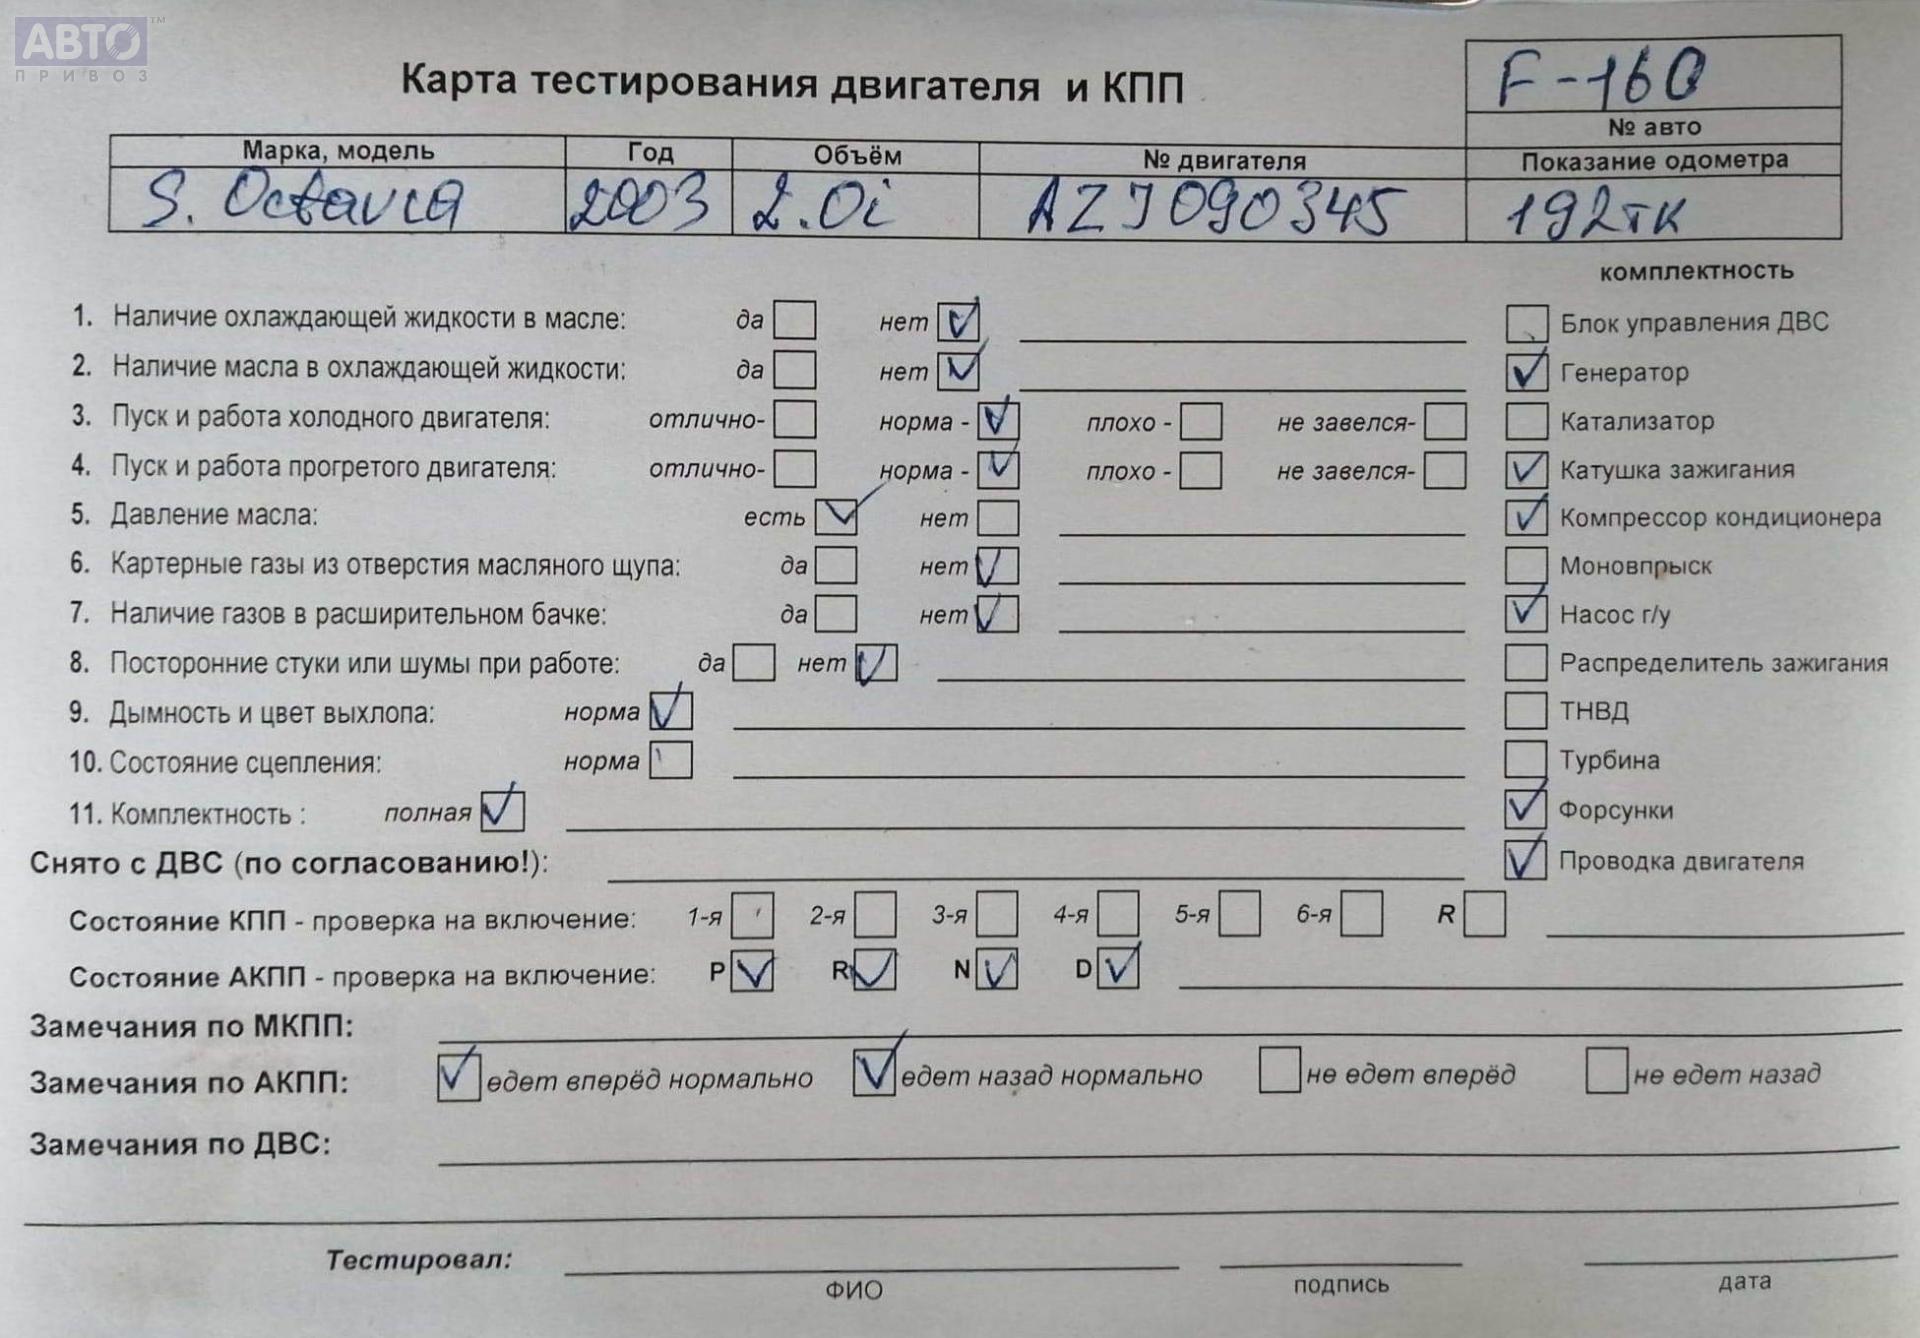 АВТО™
ПРИВОЗ
Карта тестирования двигателя и КПП
F-160
№ авто
Марка, модель Год Объём № двигателя Показание одометра
S. Octavia 2003 2.0i AZJ090345 192тк
комплектность
1. Наличие охлаждающей жидкости в масле: да нет Блок управления ДВС
2. Наличие масла в охлаждающей жидкости: да нет Генератор
3. Пуск и работа холодного двигателя: отлично- норма - плохо - не завелся- Катализатор
4. Пуск и работа прогретого двигателя: отлично- норма - плохо - не завелся- Катушка зажигания
5. Давление масла: есть нет Компрессор кондиционера
6. Картерные газы из отверстия масляного щупа: да нет Моновпрыск
7. Наличие газов в расширительном бачке: да нет Насос г/у
8. Посторонние стуки или шумы при работе: да нет Распределитель зажигания
9. Дымность и цвет выхлопа: норма ТНВД
10. Состояние сцепления: норма Турбина
11. Комплектность : полная Форсунки
Снято с ДВС (по согласованию!): Проводка двигателя
Состояние КПП - проверка на включение: 1-я 2-я 3-я 4-я 5-я 6-я R
Состояние АКПП - проверка на включение: P R N D
Замечания по МКПП:
Замечания по АКПП: едет вперёд нормально едет назад нормально не едет вперёд не едет назад
Замечания по ДВС:
Тестировал:
ФИО подпись дата